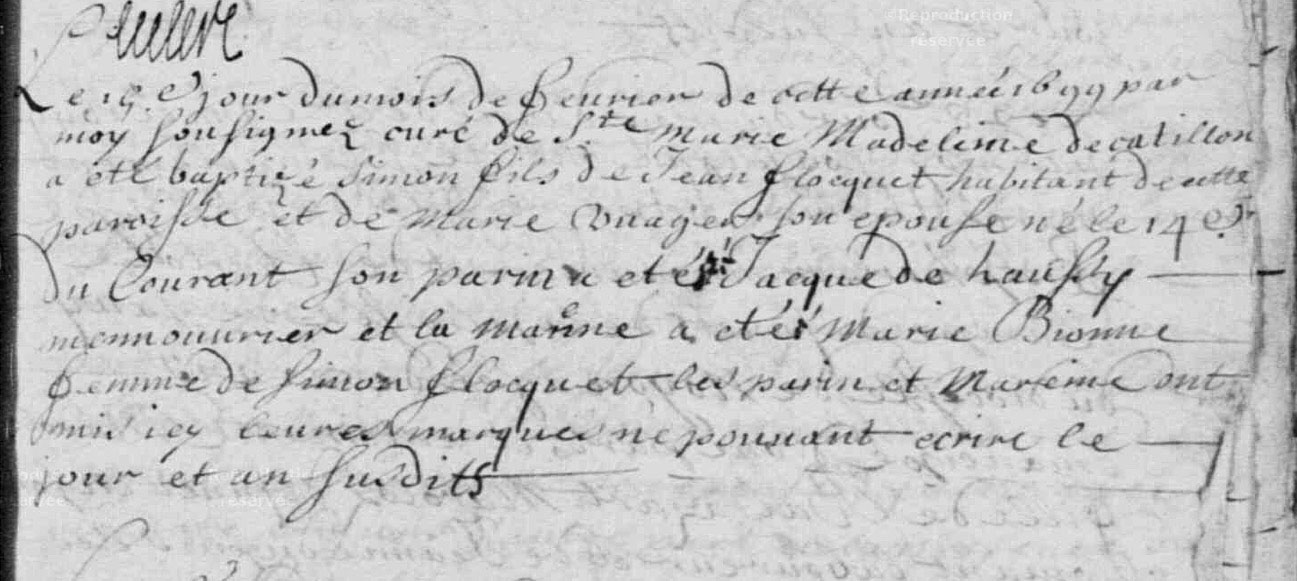 ©Reproduction
réservée
Leclerc
Le 15e jour du mois de feurier de cette année 1699 par
moy sousignez curé de Ste marie Madeleine decatillon
a eté baptizé Simon fils de Jean flocquet habitant de cette
paroisse et de marie son epouse né le 14e
du Courant son parin a eté Jacque de haussy
mennouurier et la marine a eté Marie Bionne
femme de Simon flocquet les parin et Mareine ont
mis icy leures marques ne pouuant ecrire le
jour et an susdits